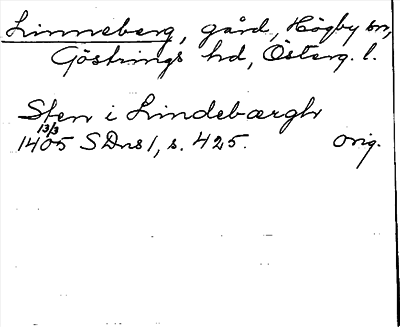 Linneberg, gård, Högby sn,
Göstrings hd, Österg. l.
Sten i Lindebærgh
13/3
1405 SDns 1, s. 425. orig.